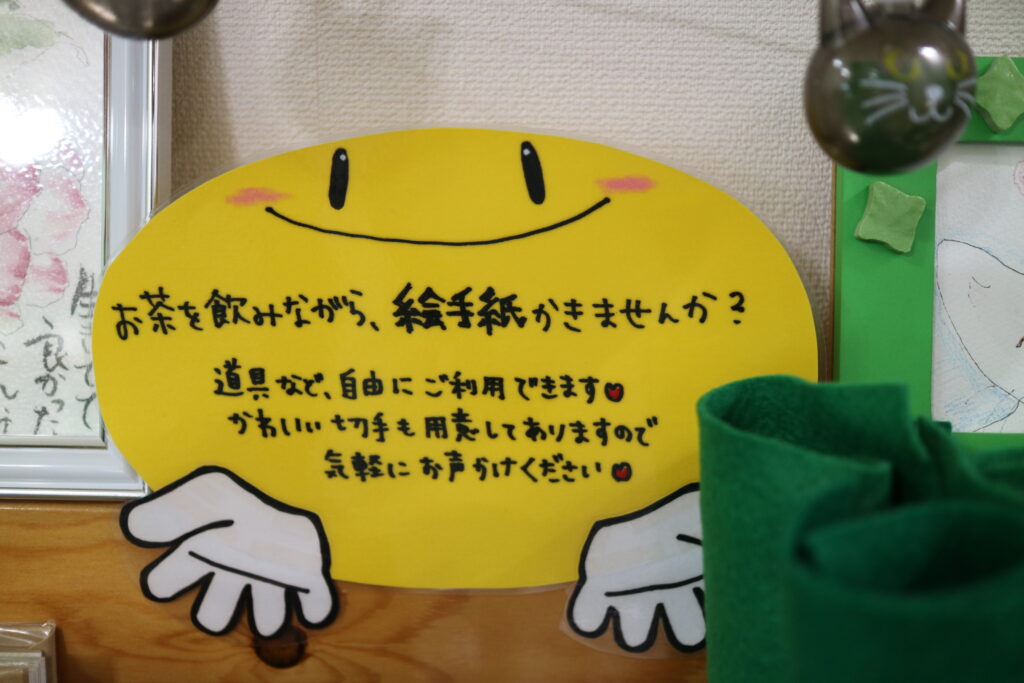 お茶を飲みながら、絵手紙かきませんか?
道具など、自由にご利用できます
かわいい切手も用意してありますので
気軽にお声かけください
生きてて
良かった